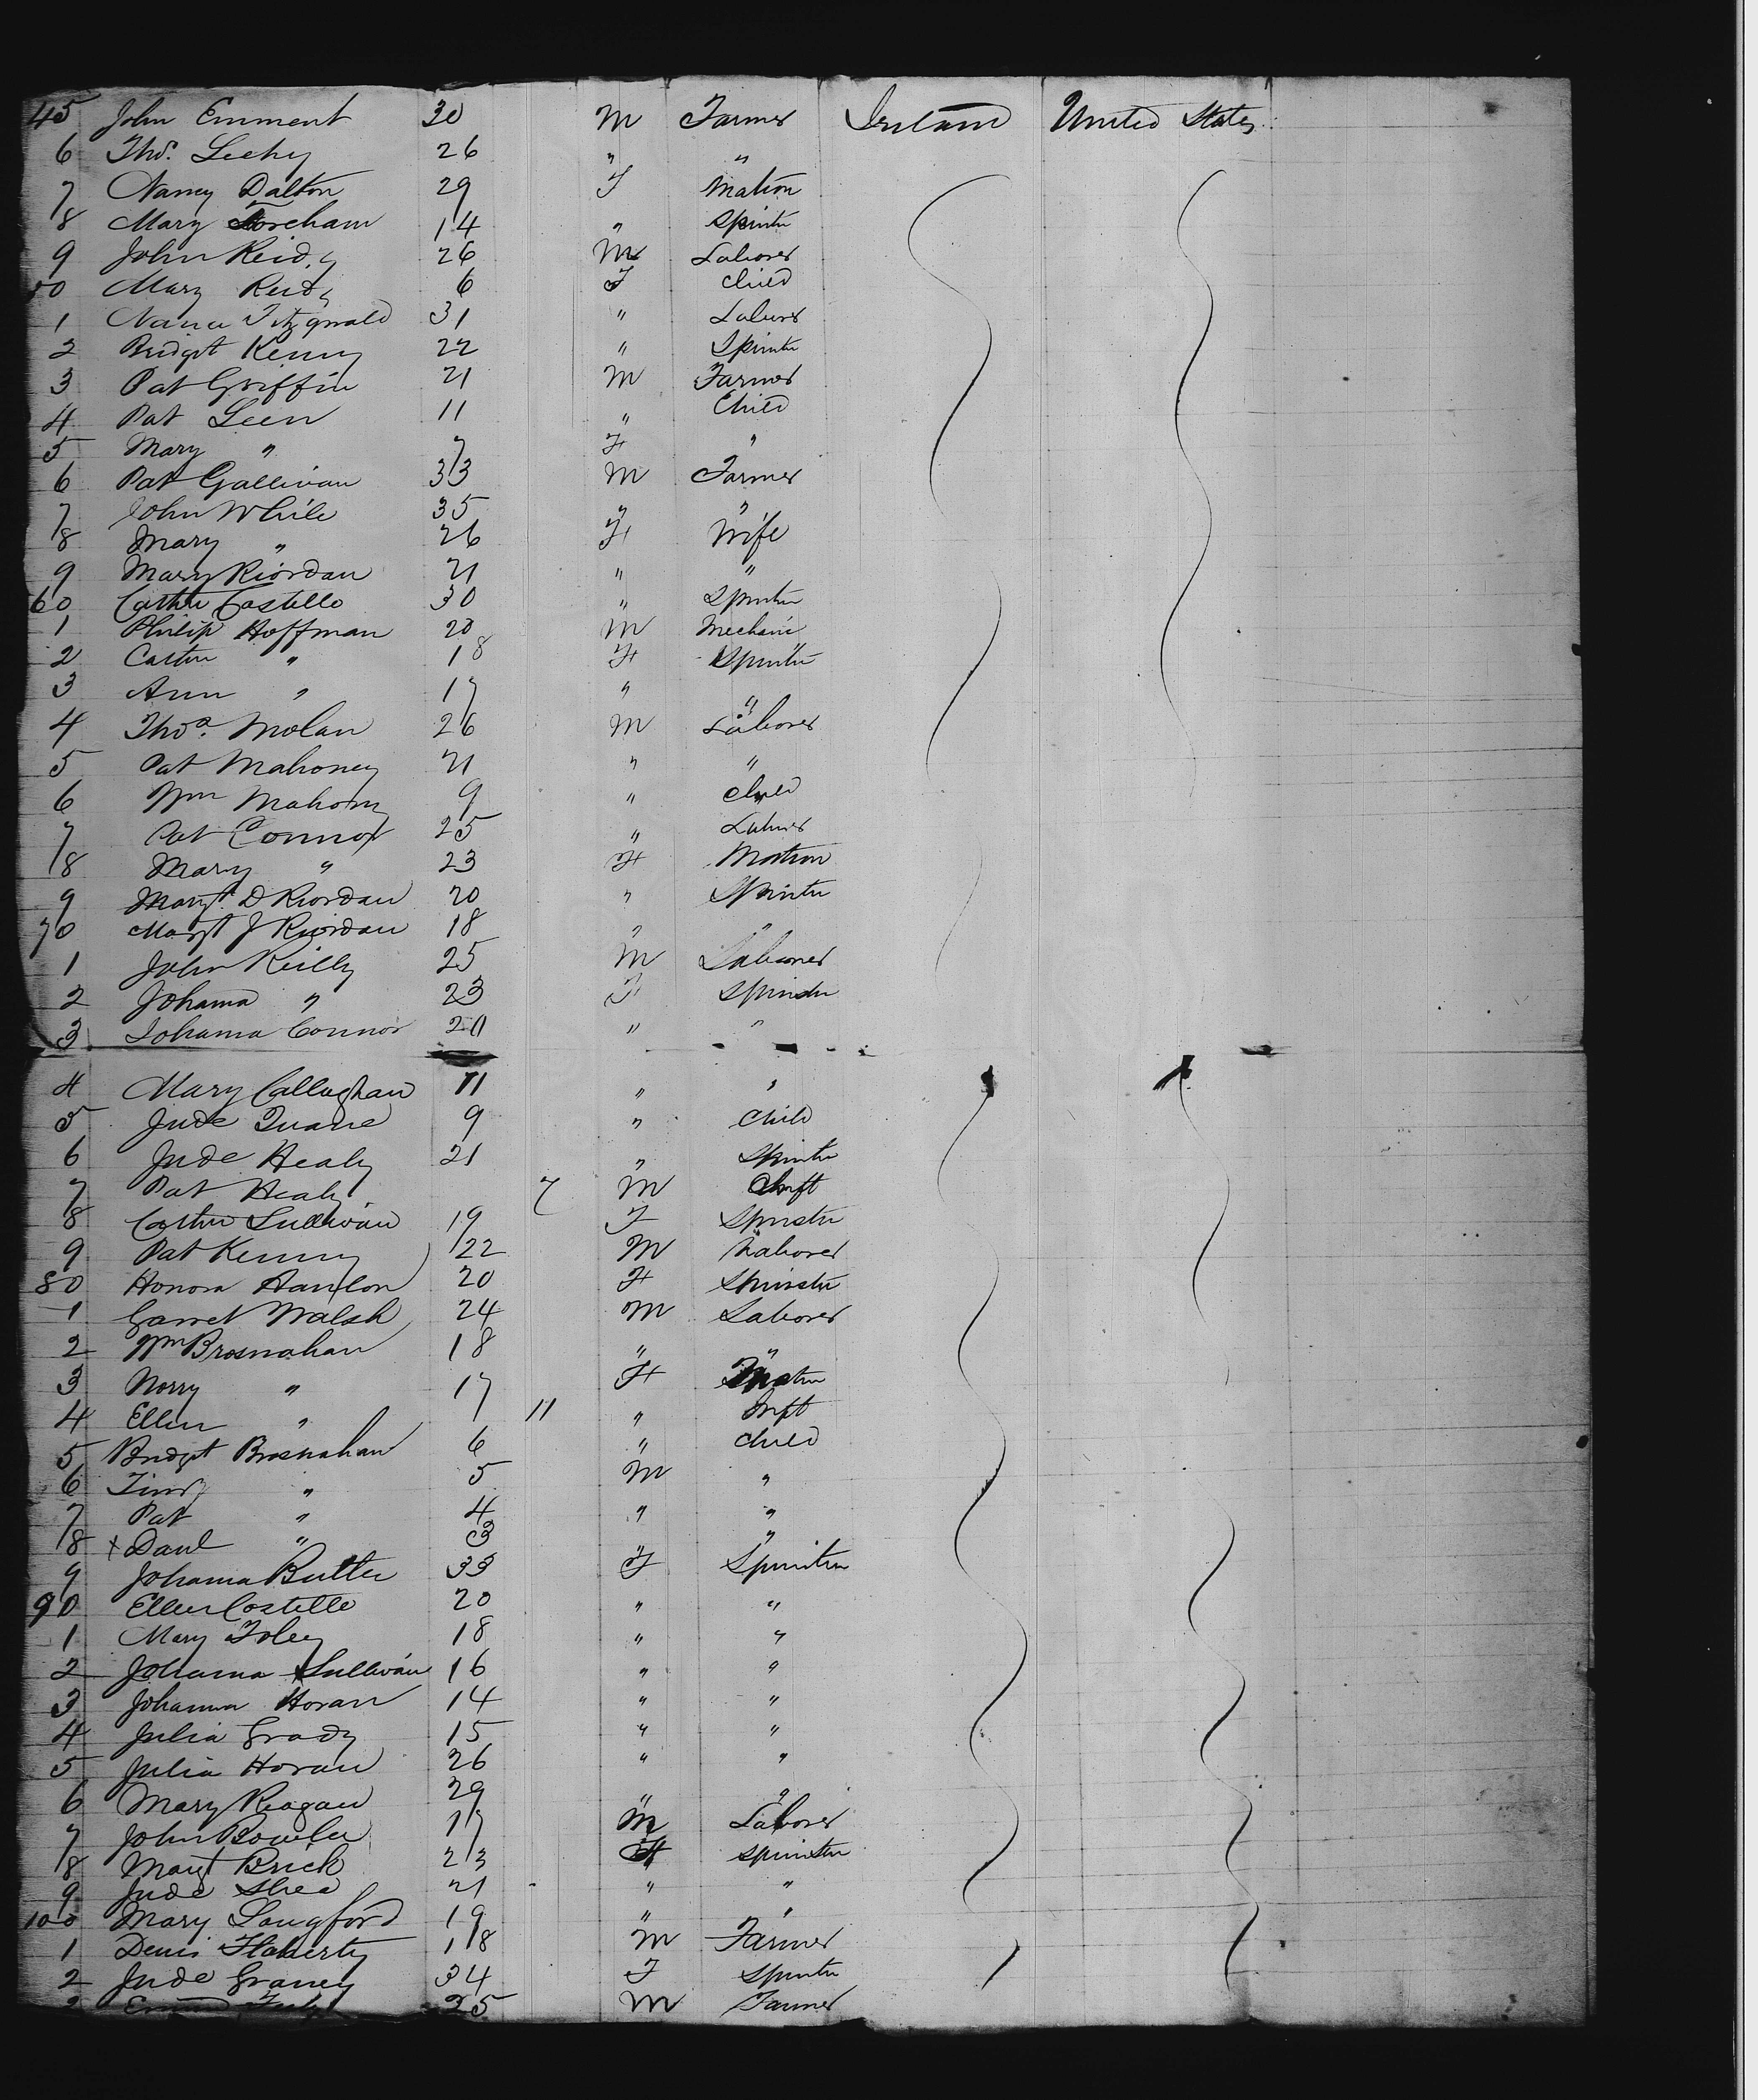 45 John Emment 30 M Farmer Ireland United States
6 Thos. Leehy 26 " "
7 Nancy Dalton 29 F Matron
8 Mary Foreham 14 " Spinster
9 John Reidy 26 M Laborer
50 Mary Reidy 6 F Child
1 Nance Fitzgerald 31 " Laborer
2 Bridget Kenny 22 " Spinster
3 Pat Griffin 21 M Farmer
4 Pat Leen 11 " Child
5 Mary " 7 F "
6 Pat Gallivan 33 M Farmer
7 John White 35 " "
8 Mary " 26 F Wife
9 Mary Riordan 21 " "
60 Cathn Costello 30 " Spinster
1 Philip Hoffman 20 M Mechanic
2 Cathn " 18 F Spinster
3 Ann " 17 " "
4 Thos. Molan 26 M Laborer
5 Pat Mahoney 21 " "
6 Wm Mahony 9 " Child
7 Pat Connor 25 " Laborer
8 Mary " 23 F Matron
9 Margt D Riordan 20 " Spinster
70 Margt J Riordan 18 " "
1 John Reilly 25 M Laborer
2 Johanna " 23 F Spinster
3 Johanna Connor 20 " "
4 Mary Callaghan 11 " "
5 Jude Quane 9 " Child
6 Jude Healy 21 " Spinster
7 Pat Healy 7 M Inft
8 Cathn Sullivan 19 F Spinster
9 Pat Kenny 22 M Laborer
80 Honora Hanlon 20 F Spinster
1 Garret Walsh 24 M Laborer
2 Wm Brosnahan 18 " "
3 Norry " 17 F Matron
4 Ellen " 11 " Inft
5 Bridget Brosnahan 6 " Child
6 Timy " 5 M "
7 Pat " 4 " "
8 x Danl " 3 " "
9 Johanna Butler 33 F Spinster
90 Ellen Costello 20 " "
1 Mary Foley 18 " "
2 Johanna Sullivan 16 " "
3 Johanna Horan 14 " "
4 Julia Grady 15 " "
5 Julia Horan 26 " "
6 Mary Reagan 29 " "
7 John Bowler 17 M Laborer
8 Margt Brick 23 F Spinster
9 Jude Shea 21 " "
100 Mary Langford 19 " "
1 Denis Flaherty 18 M Farmer
2 Jude Graney 34 F Spinster
3 25 M Farmer